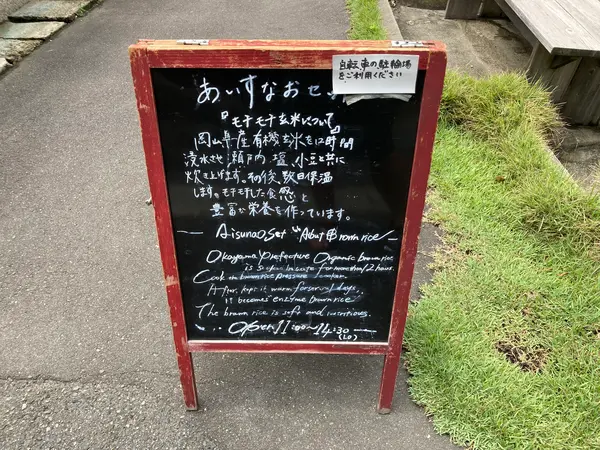 自転車の駐輪場
をご利用ください
あいすなおセ
『モチモチ玄米について』
岡山県産有機玄米を12時間
浸水させ瀬戸内塩、小豆と共に
炊き上げます。その後、数日保温
します。モチモチした食感と
豊富な栄養を作っています。
Aisunao Set "About Brown rice"
Okayama Prefecture Organic brown rice
is in water for more than 12 hours.
Cook in brown rice pressure
After, keep it warm for several days,
it becomes enzyme brown rice
The brown rice is soft and nutritious.
Open 11:00~14:30
(LO)